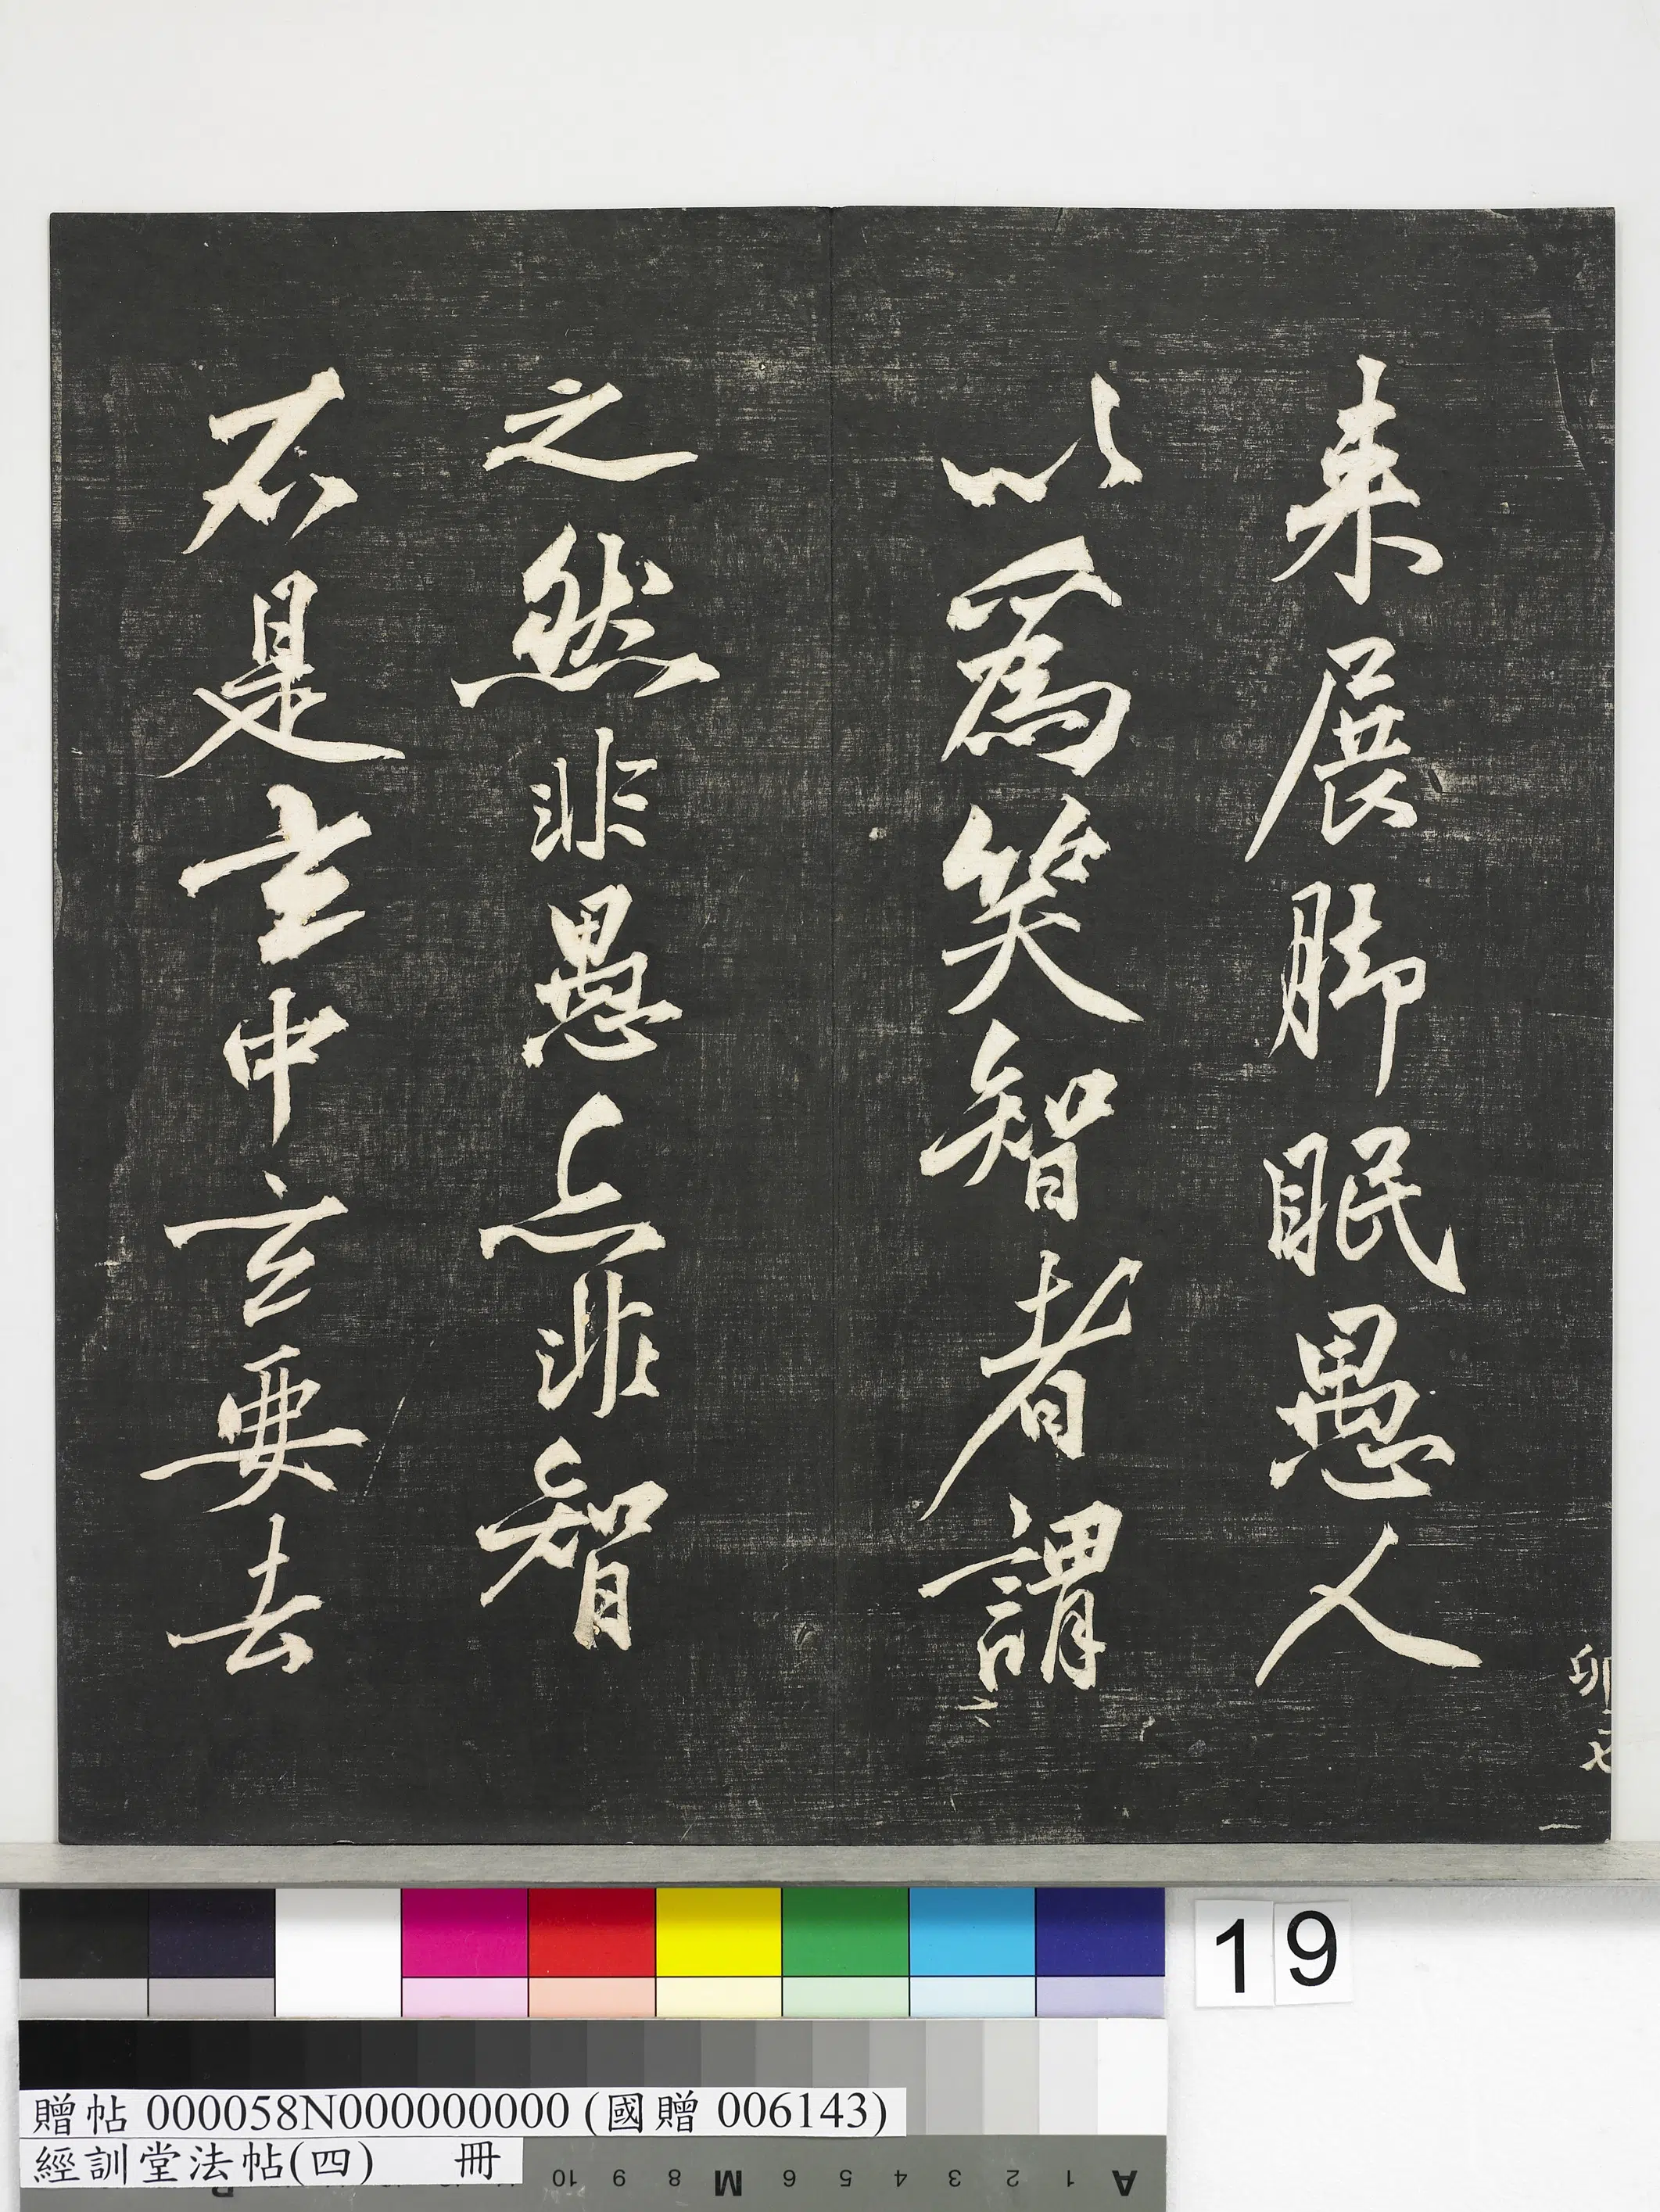 来展脚眠愚人
以為笑智者謂
之然非愚亦非智
不是玄中玄要去
卯七
六
19
贈帖 000058N000000000 (國贈 006143)
經訓堂法帖(四)　冊
A 1 2 3 4 5 6 M 8 9 10